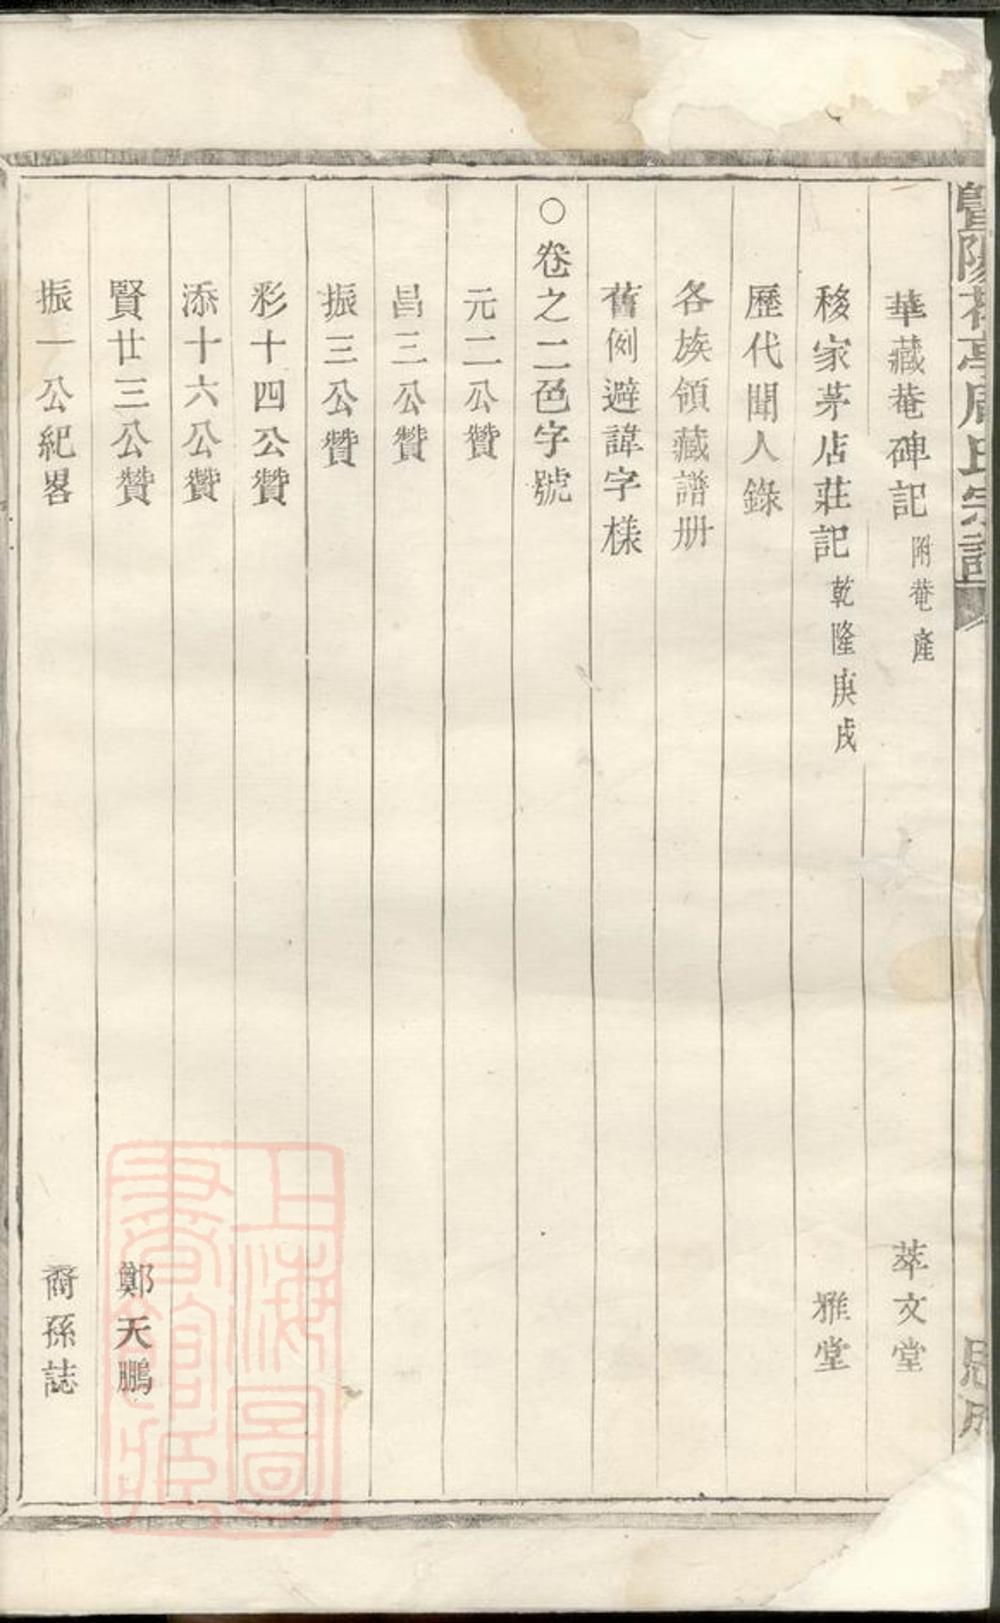 暨陽花亭周氏宗譜
華藏菴碑記 附菴產 萃文堂
移家茅店莊記 乾隆庚戌 雅堂
歷代聞人錄
各族領藏譜册
舊例避諱字樣
○卷之二色字號
元二公贊
昌三公贊
振三公贊
彩十四公贊
添十六公贊
賢廿三公贊 鄭天鵬
振一公紀畧 裔孫誌
上海圖書館藏